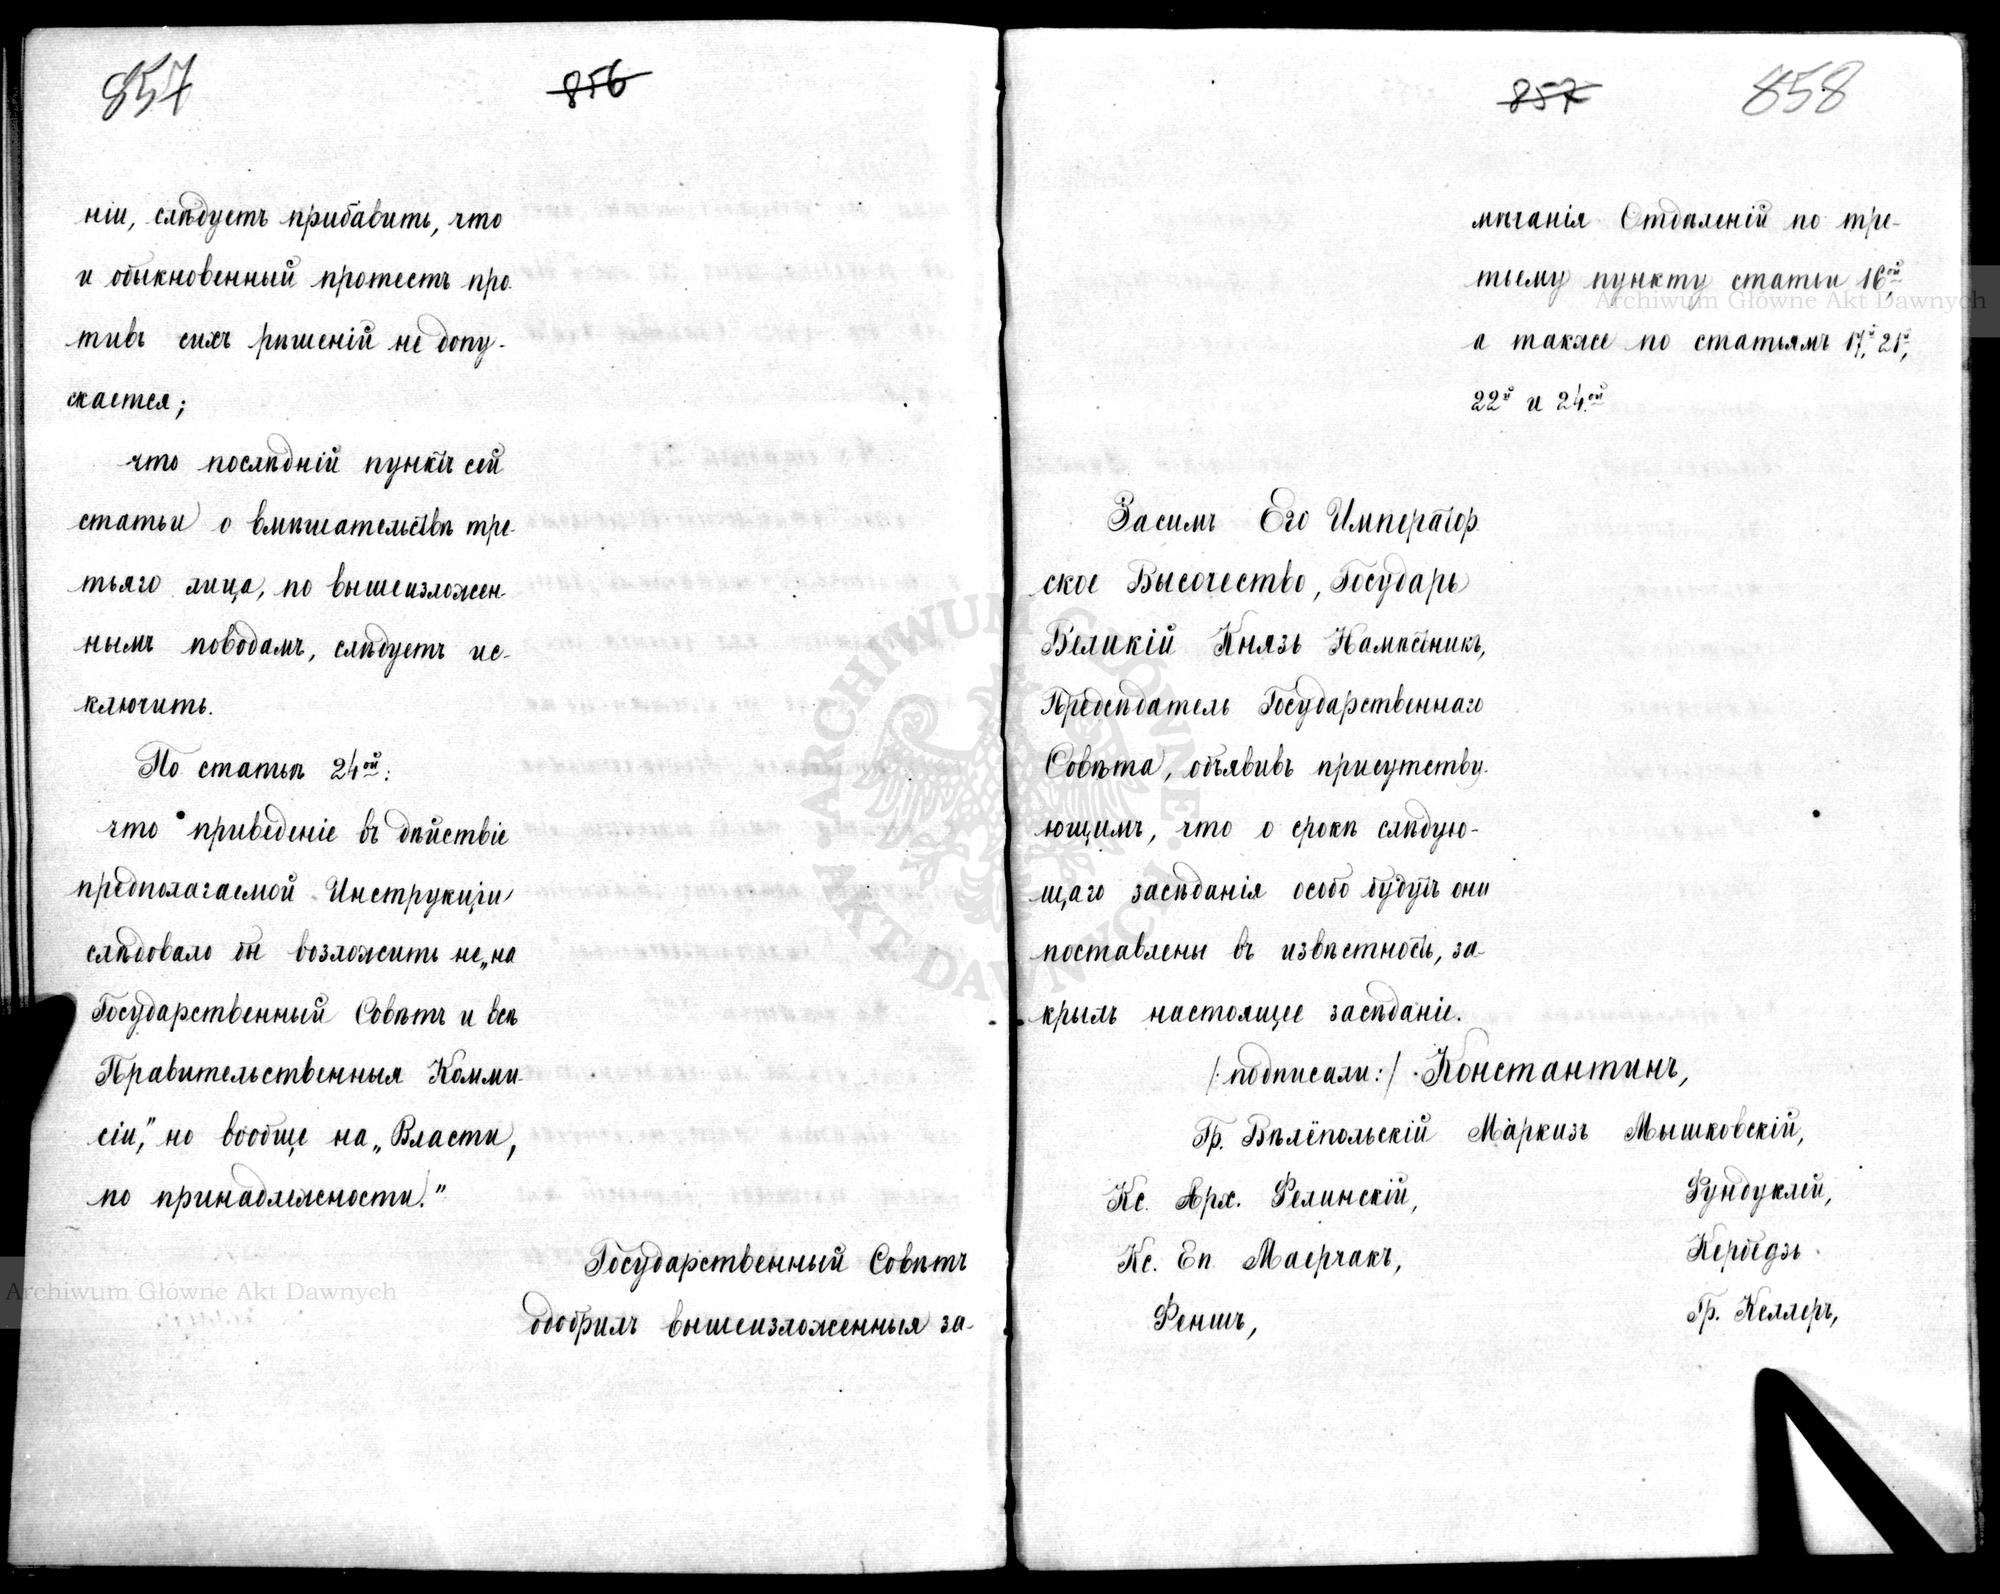 857
856
ніи, слѣдуетъ прибавить, что
и обыкновенный протестъ про-
тивъ сихъ рѣшеній не допу-
скается;
что послѣдній пунктъ сей
статьи о вмѣшательствѣ тре-
тьяго лица, по вышеизложен-
нымъ поводамъ, слѣдуетъ ис-
ключить.
По статьѣ 24ой:
что приведеніе въ дѣйствіе
предполагаемой Инструкціи
слѣдовало бы возложить не „на
Государственный Совѣтъ и всѣ
Правительственныя Комми-
сіи," но вообще на „Власти,
по принадлежности."
Государственный Совѣтъ
одобрилъ вышеизложенныя за-
857
858
мѣчанія Отдѣленій по тре-
тьему пункту статьи 16ой,
а также по статьямъ 17й, 21й,
22й и 24ой
Засимъ Его Император-
ское Высочество, Государь
Великій Князь Намѣстникъ,
Предсѣдатель Государственнаго
Совѣта, объявивъ присутству-
ющимъ, что о срокѣ слѣдую-
щаго засѣданія особо будутъ они
поставлены въ извѣстность, за-
крылъ настоящее засѣданіе.
/:подписали:/ Константинъ,
Гр. Вѣлёпольскій Маркизъ Мышковскій,
Кс. Арх. Фелинскій, Фундуклей,
Кс. Еп. Маерчакъ, Кербедзъ
Феншъ, Гр. Келлеръ,
Archiwum Główne Akt Dawnych
Archiwum Główne Akt Dawnych
ARCHIWUM GŁÓWNE AKT DAWNYCH